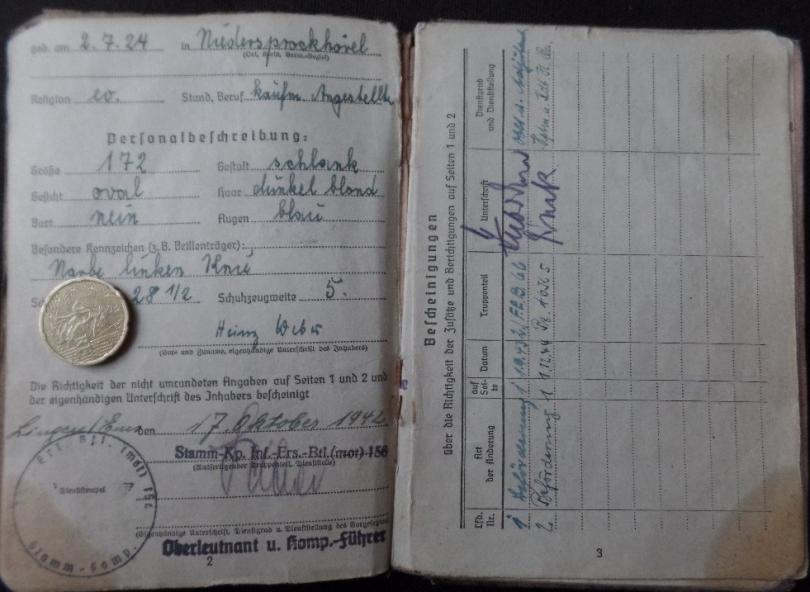 geb. am 2.7.24 in Niedersprockhövel
(Ort, Kreis, Verw.-Bezirk)
Religion ev. Stand, Beruf kaufm. Angestellter
Personalbeschreibung:
Größe 172 Gestalt schlank
Gesicht oval Haar dunkelblond
Bart nein Augen blau
Besondere Kennzeichen (z.B. Brillenträger):
Narbe linken Knie
28 1/2 Schuhzeugweite 5.
Heinz Weber
(Vor- und Zuname, eigenhändige Unterschrift des Inhabers)
Die Richtigkeit der nicht umrandeten Angaben auf Seiten 1 und 2 und
der eigenhändigen Unterschrift des Inhabers bescheinigt
Lingen/Ems den 17. Oktober 1942
Stamm-Kp. Inf.-Ers.-Btl.(mot) 156
(Ausfertigender Truppenteil, Dienststelle)
Dienststempel
Stamm-Komp.
(Eigenhändige Unterschrift, Dienstgrad u. Dienststellung des Vorgesetzten)
Oberleutnant u. Komp.-Führer
2
Bescheinigungen
über die Richtigkeit der Zusätze und Berichtigungen auf Seiten 1 und 2
Lfd. Nr. Art der Änderung auf Seite Datum Truppenteil Unterschrift Dienstgrad und Dienststellung
1 Beförderung 1
2. Beförderung 1 1.12.44
3